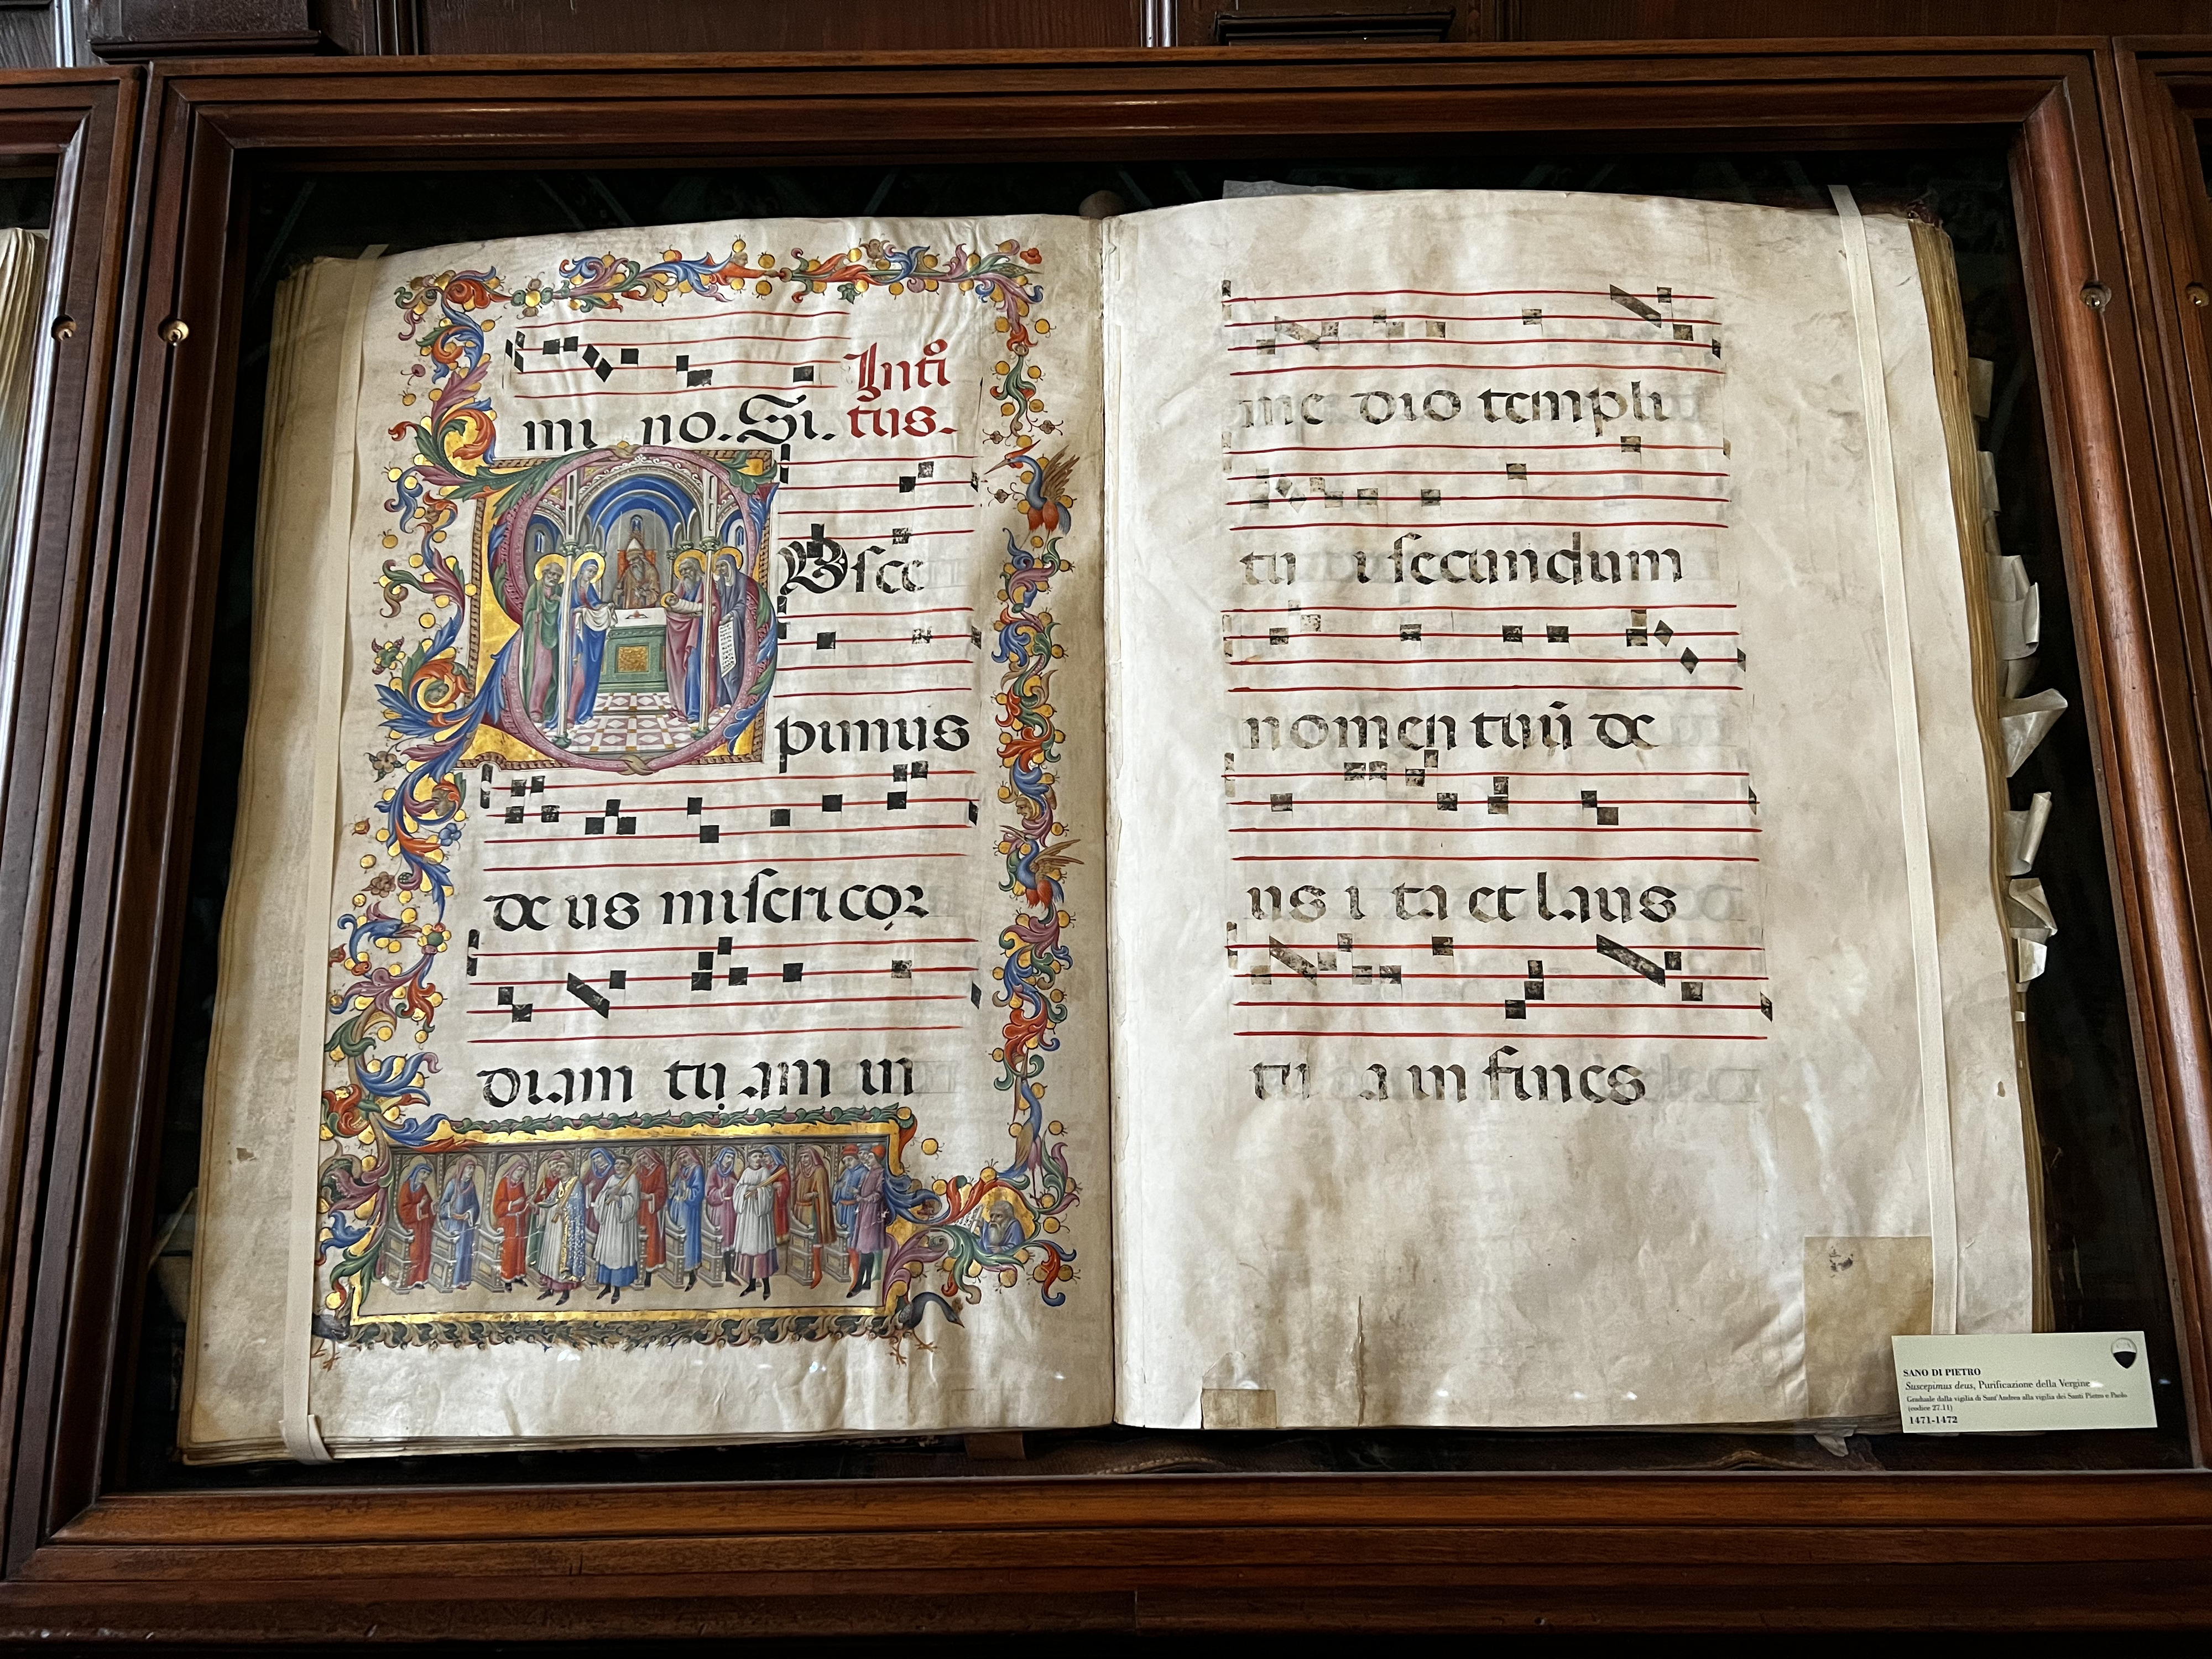 mi no. Si. Inti
tus.
Vsce
pimus
de us misericor
diam tu am in
me dio templi
tu i secundum
nomen tuū de
us i ta et laus
tu a in fines
SANO DI PIETRO
Suscepimus deus, Purificazione della Vergine
Graduale dalla vigilia di Sant'Andrea alla vigilia dei Santi Pietro e Paolo
(codice 27.11)
1471-1472